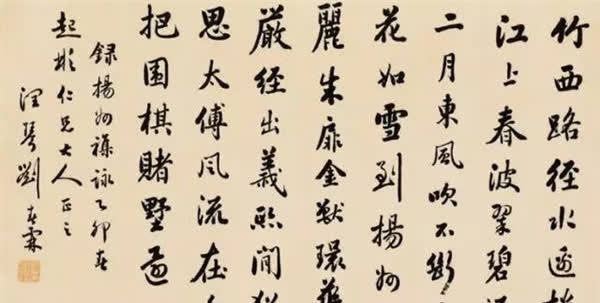 竹西路径水边
江上春波翠碧
二月東風吹不断
花如雪到揚州
麗朱扉金獣環
厳経出義熙間
思太傅風流在
把囲棋賭墅
録揚州雜詠乙卯春
起彬仁兄大人正之
潤琴劉春霖